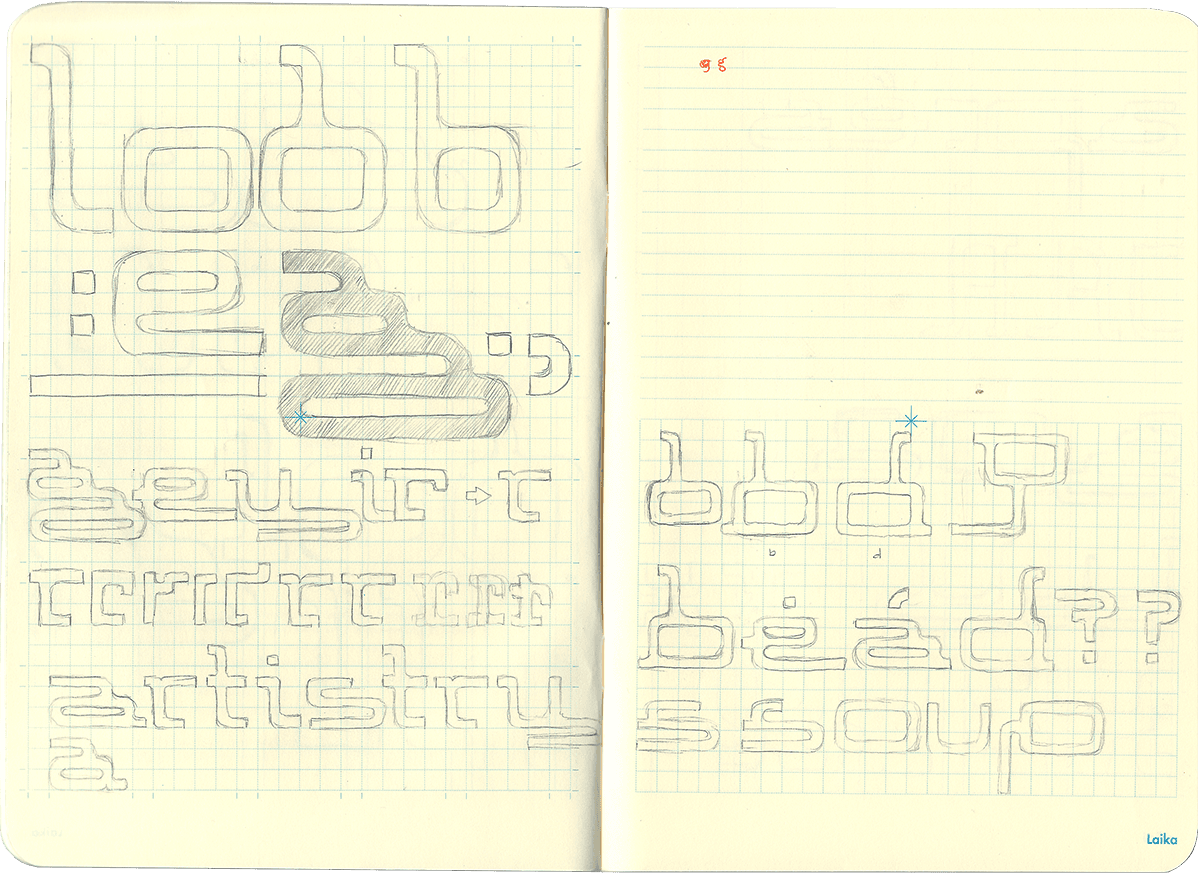 lobb
:eg:)
geyir⇨r
rrrrrrr
artistry
a
g g
bbdg
b d
bėád??
s soup
Laika